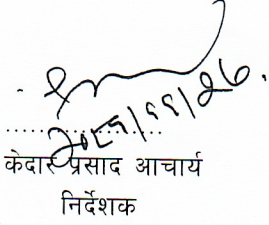 २०८१/११/२७.
....................
केदार प्रसाद आचार्य
निर्देशक